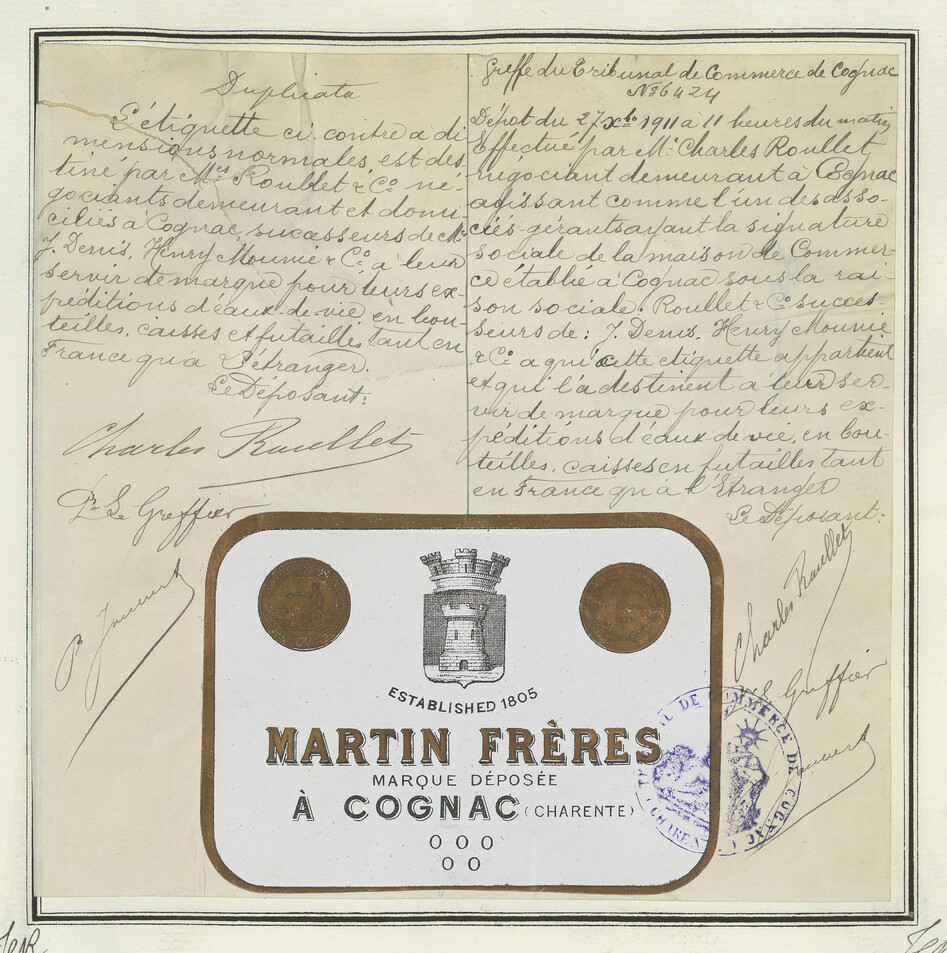 Duplicata
L'étiquette ci contre a di-
mensions normales est des-
tiné par Mrs Roullet & Co. né-
gociants demeurant et domi-
ciliés à Cognac, successeurs de Mr
J. Denis, Henry Mounié & Co. a leur
servir de marque pour leurs ex-
péditions d'eaux-de-vie en bou-
teilles, caisses et futailles tant en
France qu'a l'étranger.
Le Déposant:
Charles Roullet
Pr. Le Greffier
Greffe du Tribunal de Commerce de Cognac
No 6424
Dépot du 27 Xbre 1911 a 11 heures du matin
Effectué par Mr. Charles Roullet
négociant demeurant à Cognac
agissant comme l'un des asso-
ciés-gérants ayant la signature
sociale de la maison de Commer-
ce établie à Cognac sous la rai-
son sociale: Roullet & Co. succes-
seurs de: J. Denis, Henry Mounié
& Co. a qui cette etiquette appartient
et qui la destinent a leur ser-
vir de marque pour leurs ex-
péditions d'eaux-de-vie, en bou-
teilles, caisses en futailles tant
en France qu'a l'Etranger
Le Déposant:
Charles Roullet
Le Greffier
ESTABLISHED 1805
MARTIN FRÈRES
MARQUE DÉPOSÉE
À COGNAC (CHARENTE)
O O O
O O
DE COMMERCE DE COGNAC